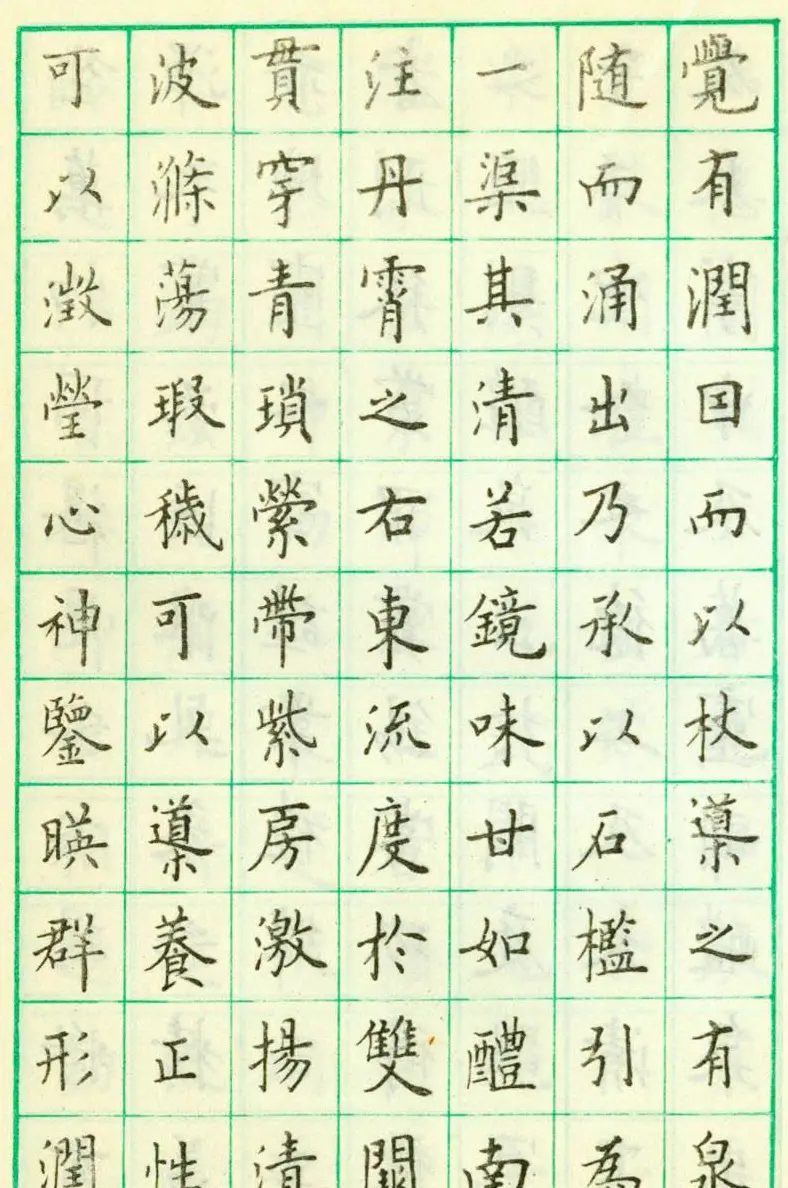 覺有潤因而以杖導之有泉
随而涌出乃承以石檻引為
一渠其清若鏡味甘如醴南
注丹霄之右東流度於雙闕
貫穿青瑣縈帶紫房激揚清
波滌蕩瑕穢可以導養正性
可以澂瑩心神鑒暎群形潤